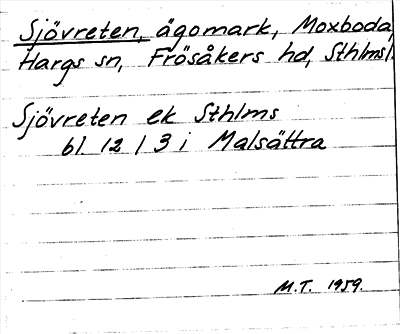 Sjövreten, ägomark, Moxboda,
Hargs sn, Frösåkers hd, Sthlmsl.
Sjövreten ek Sthlms
bl 12 | 3 i Malsättra
M.T. 1959.